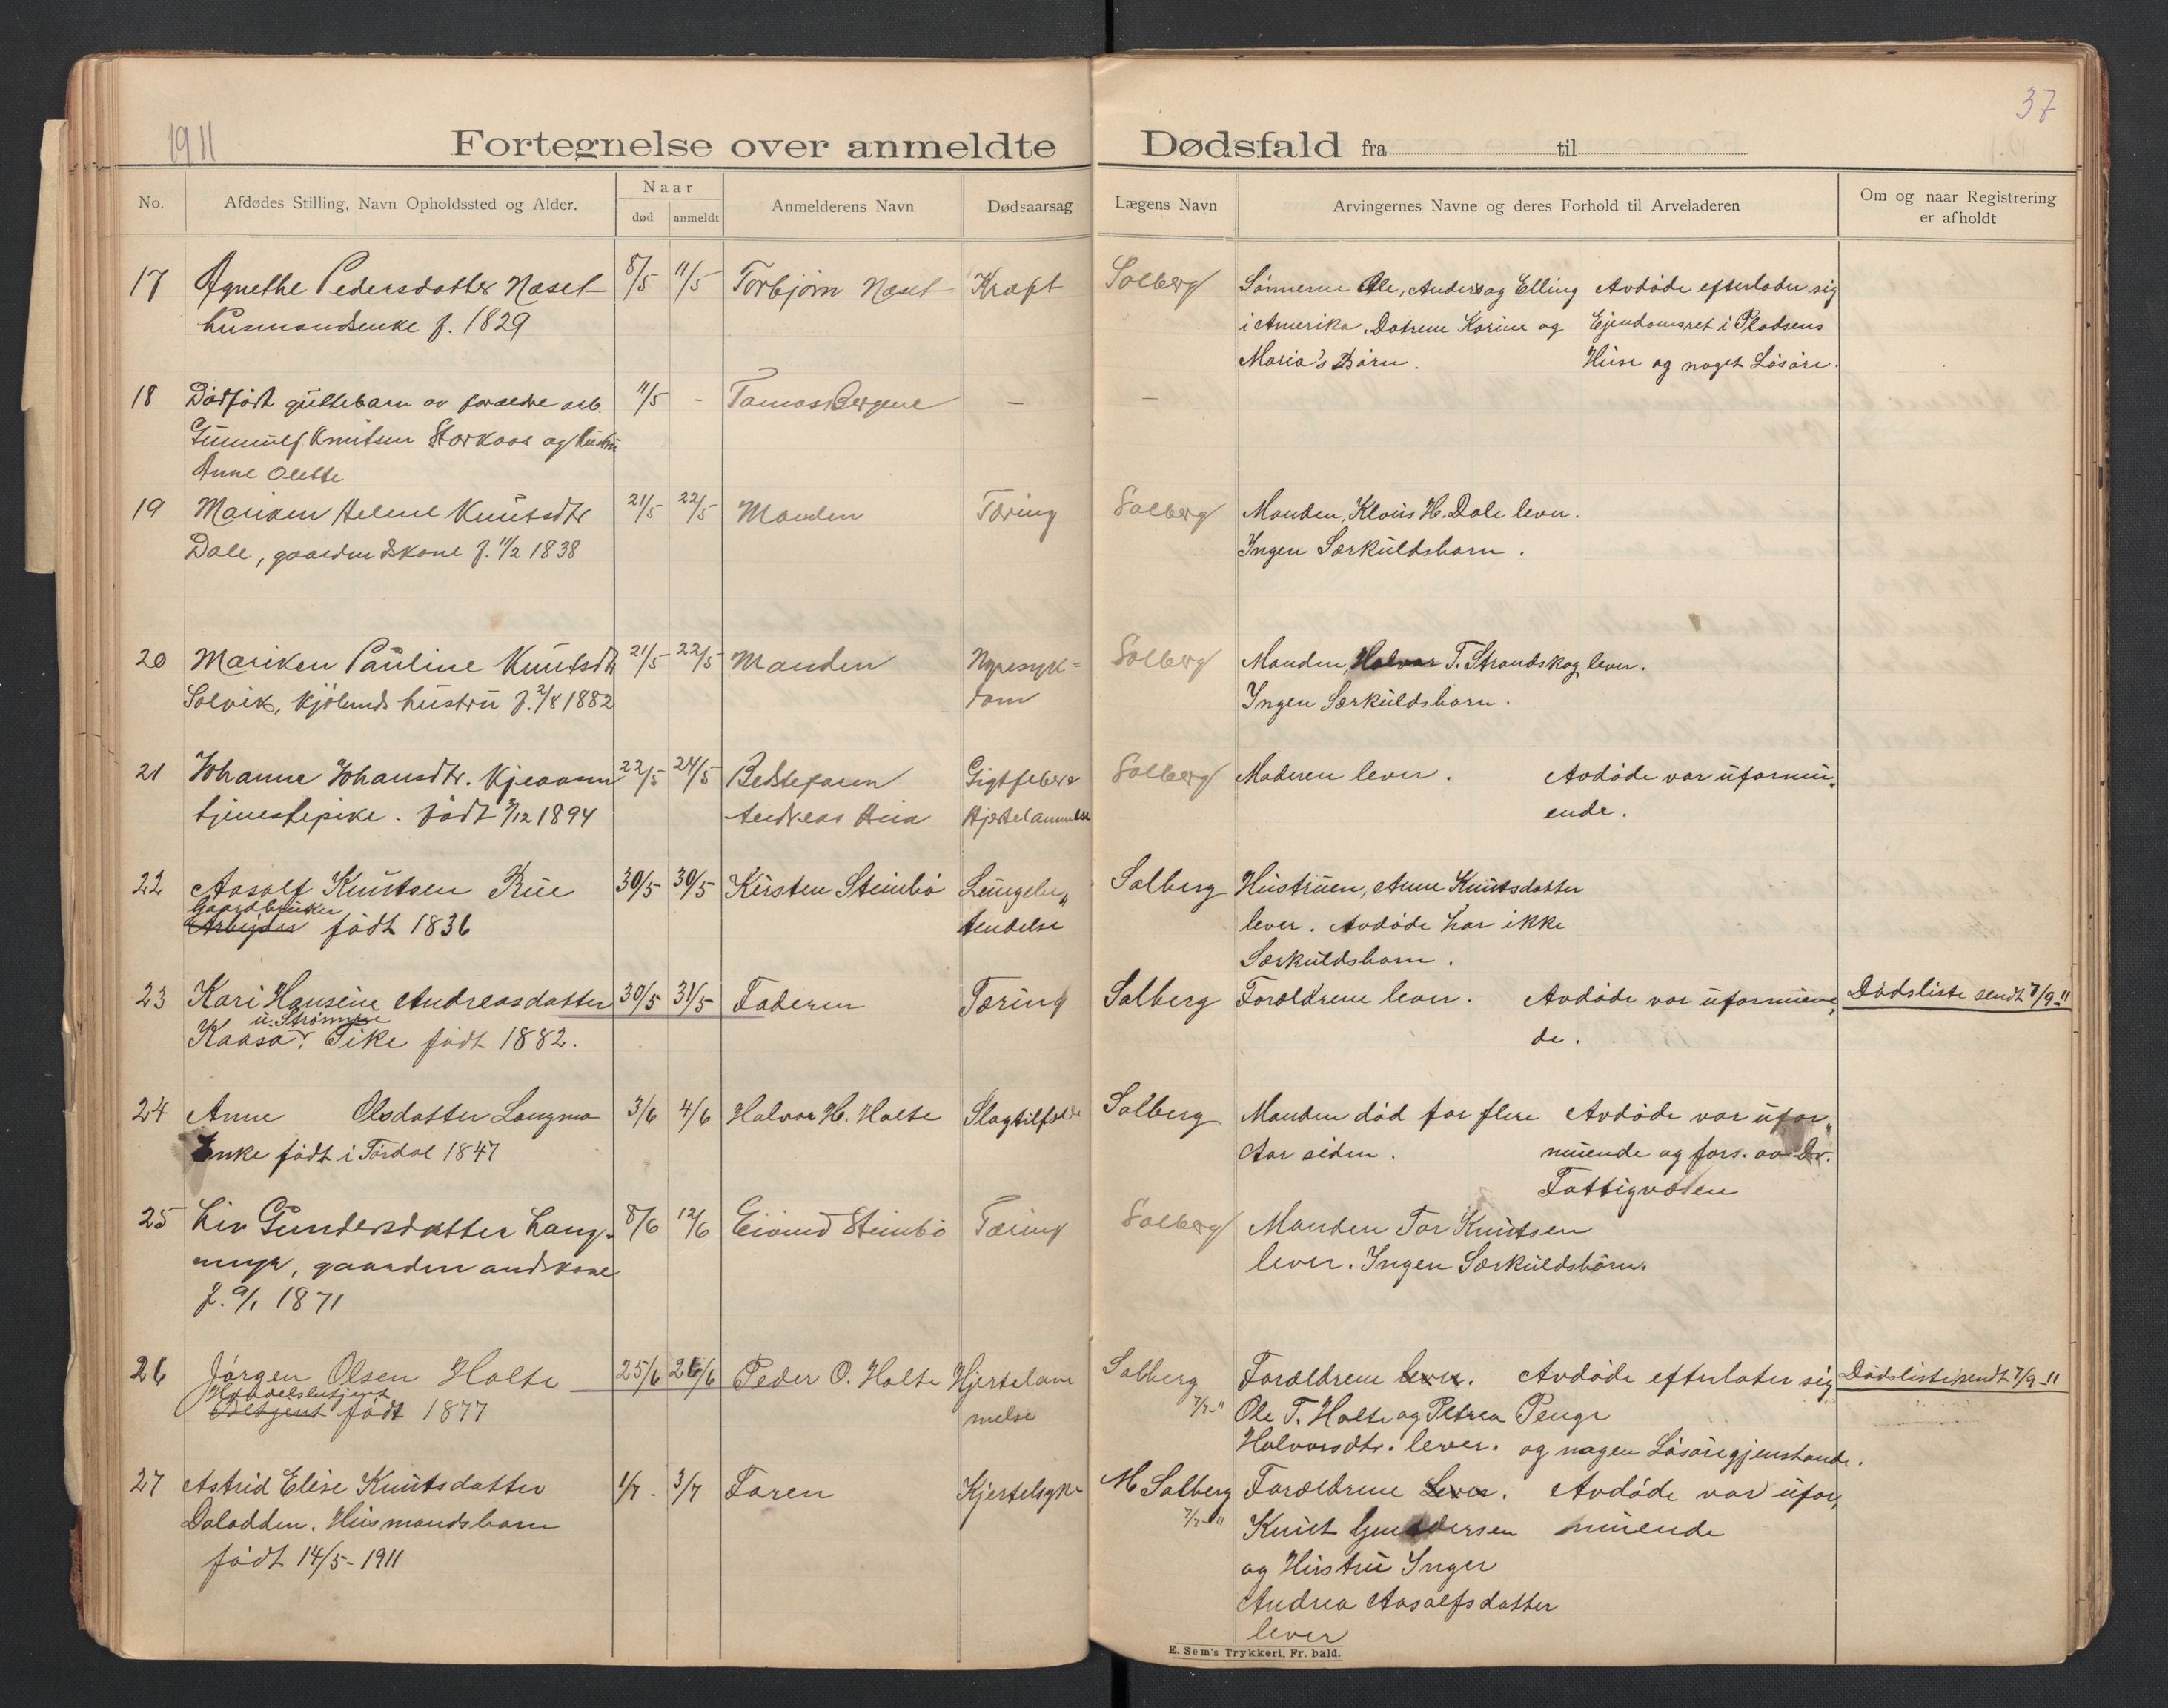 37
1911
Fortegnelse over anmeldte Dødsfald fra til
No.
Afdødes Stilling, Navn Opholdssted og Alder.
Naar
død
anmeldt
Anmelderens Navn
Dødsaarsag
Lægens Navn
Arvingernes Navne og deres Forhold til Arveladeren
Om og naar Registrering
er afholdt
17 Agnethe Pedersdatter Næset 8/5 11/5 Torbjørn Næset Kræft Solberg Sønnerne Ole, Anders og Elling Avdøde efterlader sig
husmandsenke f. 1829 i Amerika. Døtrene Karine og Ejendomsret i Pladsens
Maria's Børn. Huse og noget Løsøre.
18 Dødfødt guttebarn av forældre arb. 11/5 - Tomas Bergene — —
Gunnulf Knutsen Storkaas og hustru
Anne Olette
19 Mariken Helene Knutsdtr 21/5 22/5 Manden Tæring Solberg Manden, Klaus H. Dale lever.
Dale, gaardmdskone f. 11/2 1838 Ingen Særkuldsbarn.
20 Mariken Pauline Knutsdtr 21/5 22/5 Manden Nyresyk= Solberg Manden, Halvor T. Strandskog lever.
Solvik, kjølmds hustru f. 2/8 1882 dom Ingen Særkuldsbarn.
21 Johanne Johansdtr. Kjeaasen 22/5 24/5 Bedstefaren Gigtfeber Solberg Moderen lever. Avdøde var uformu,
tjenestepike. født /12 1894 Andreas Hjertelammelse ende.
22 Aasolf Knutsen Rue 30/5 30/5 Kirsten Steinbø Lungebe„ Solberg Hustruen, Anne Knutsdatter
Gaardbruker
Arbejder født 1836 tendelse lever. Avdøde har ikke
Særkuldsbarn.
23 Kari Hansine Andreasdatter 30/5 31/5 Faderen Tæring Solberg Forældrene lever. Avdøde var uformuen, Dødsliste sendt 7/9-11
u. Strømme
Kaasa. Pike født 1882. de.
24 Anne Olsdatter Langmo 3/6 4/6 Halvor H. Holte Slagtilfælde Solberg Manden død for flere Avdøde var ufor„
Enke født i Tørdal 1847 Aar siden. muende og fors. av Dr.
Fattigvæsen
25 Liv Gundersdatter Lang- 8/6 12/6 Eivind Steinbø Tæring Solberg Manden Tor Knutsen
myr, gaardmandskone lever. Ingen Særkuldsbørn.
f. 9/1 1871
26 Jørgen Olsen Holte 25/6 26/6 Peder O. Holte Hjertelam Solberg Forældrene lever. Avdøde efterlater sig Dødsliste sendt 7/9-11
Handelsbetjent
Betjent født 1877 melse 7/7-11 Ole T. Holte og Petrea Penge
Halvorsdtr. lever. og nogen Løsøregjenstande.
27 Astrid Elise Knutsdatter 1/7. 3/7 Faren Kjertelsyk- M Solberg Forældrene lever. Avdøde var ufor,
Dalodden. Husmandsbarn 7/7-11 Knut Gundersen muende
født 14/5-1911 og Hustru Inger
Andrea Aasolfsdatter
lever
E. Sem's Trykkeri, Fr. hald.